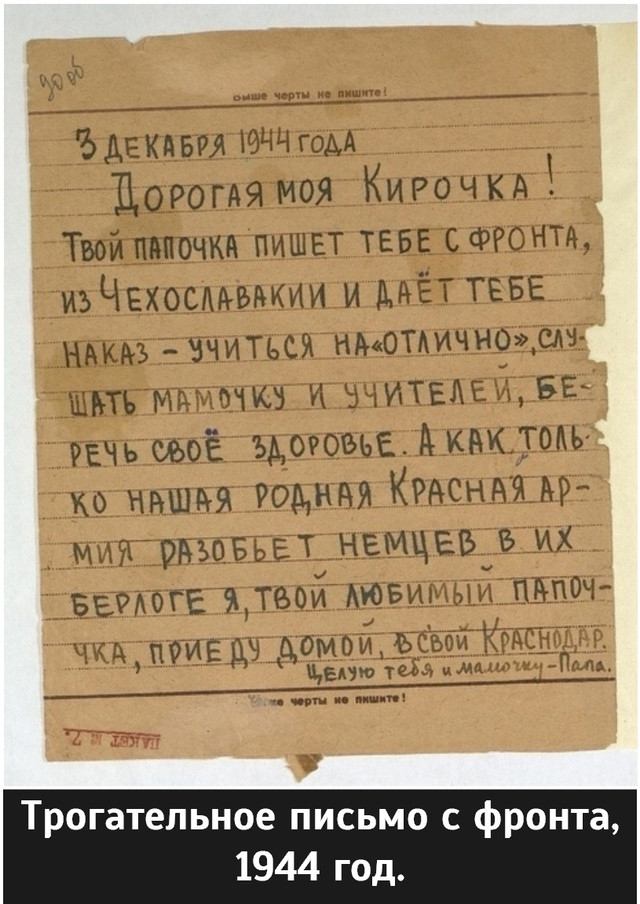 выше черты не пишите!
3 ДЕКАБРЯ 1944 ГОДА
ДОРОГАЯ МОЯ КИРОЧКА!
ТВОЙ ПАПОЧКА ПИШЕТ ТЕБЕ С ФРОНТА,
ИЗ ЧЕХОСЛАВАКИИ И ДАЁТ ТЕБЕ
НАКАЗ – УЧИТЬСЯ НА «ОТЛИЧНО», СЛУ-
ШАТЬ МАМОЧКУ И УЧИТЕЛЕЙ, БЕ-
РЕЧЬ СВОЁ ЗДОРОВЬЕ. А КАК ТОЛЬ-
КО НАША́Я РОДНАЯ КРАСНАЯ АР-
МИЯ РАЗОБЬЕТ НЕМЦЕВ В ИХ
БЕРЛОГЕ Я, ТВОЙ ЛЮБИМЫЙ ПАПОЧ-
ЧКА, ПРИЕДУ ДОМОЙ, В СВОЙ КРАСНОДАР.
ЦЕЛУЮ тебя и мамочку – Папа.
черты не пишите!
ПАКЕТ № 7.
Трогательное письмо с фронта,
1944 год.